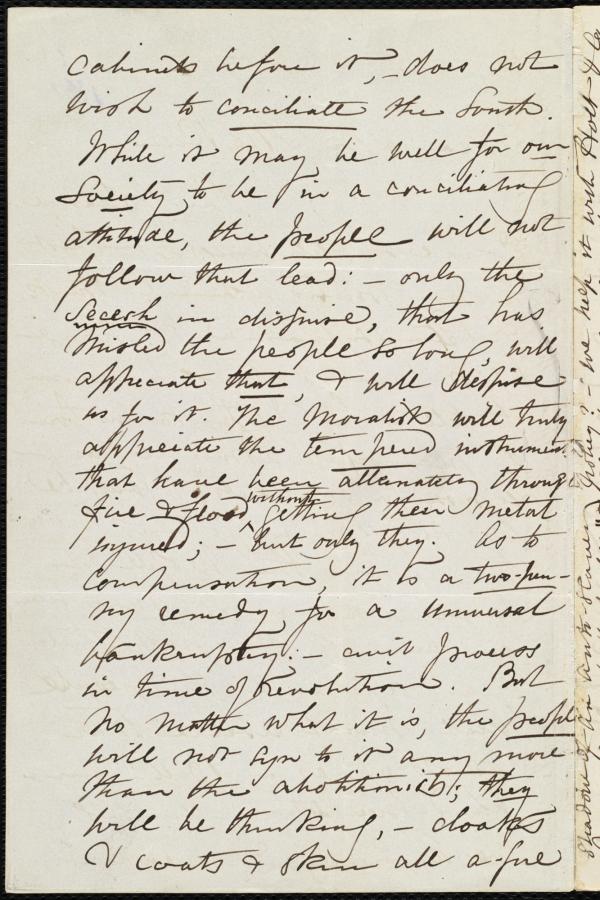 cabinets before it, – does not
wish to conciliate the South.
While it may be well for our
Society to be in a conciliating
attitude, the people will not
follow that lead: – only the
secesh in disguise, that has
misled the people so long, will
appreciate that, & will despise
us for it. The moralists will truly
appreciate the tempered instrument
that have been alternately through
fire & flood without getting their metal
injured; – but only they. As to
compensation, it is a two-pen-
ny remedy for a universal
bankruptcy: – civil process
in time of revolution. But
no matter what it is, the people
will not agree to it any more
than the abolitionists; they
will be thinking, – cloaks
& coats & skin all a-fire
Shadow of an anti-slavery we help it with Holt & Co